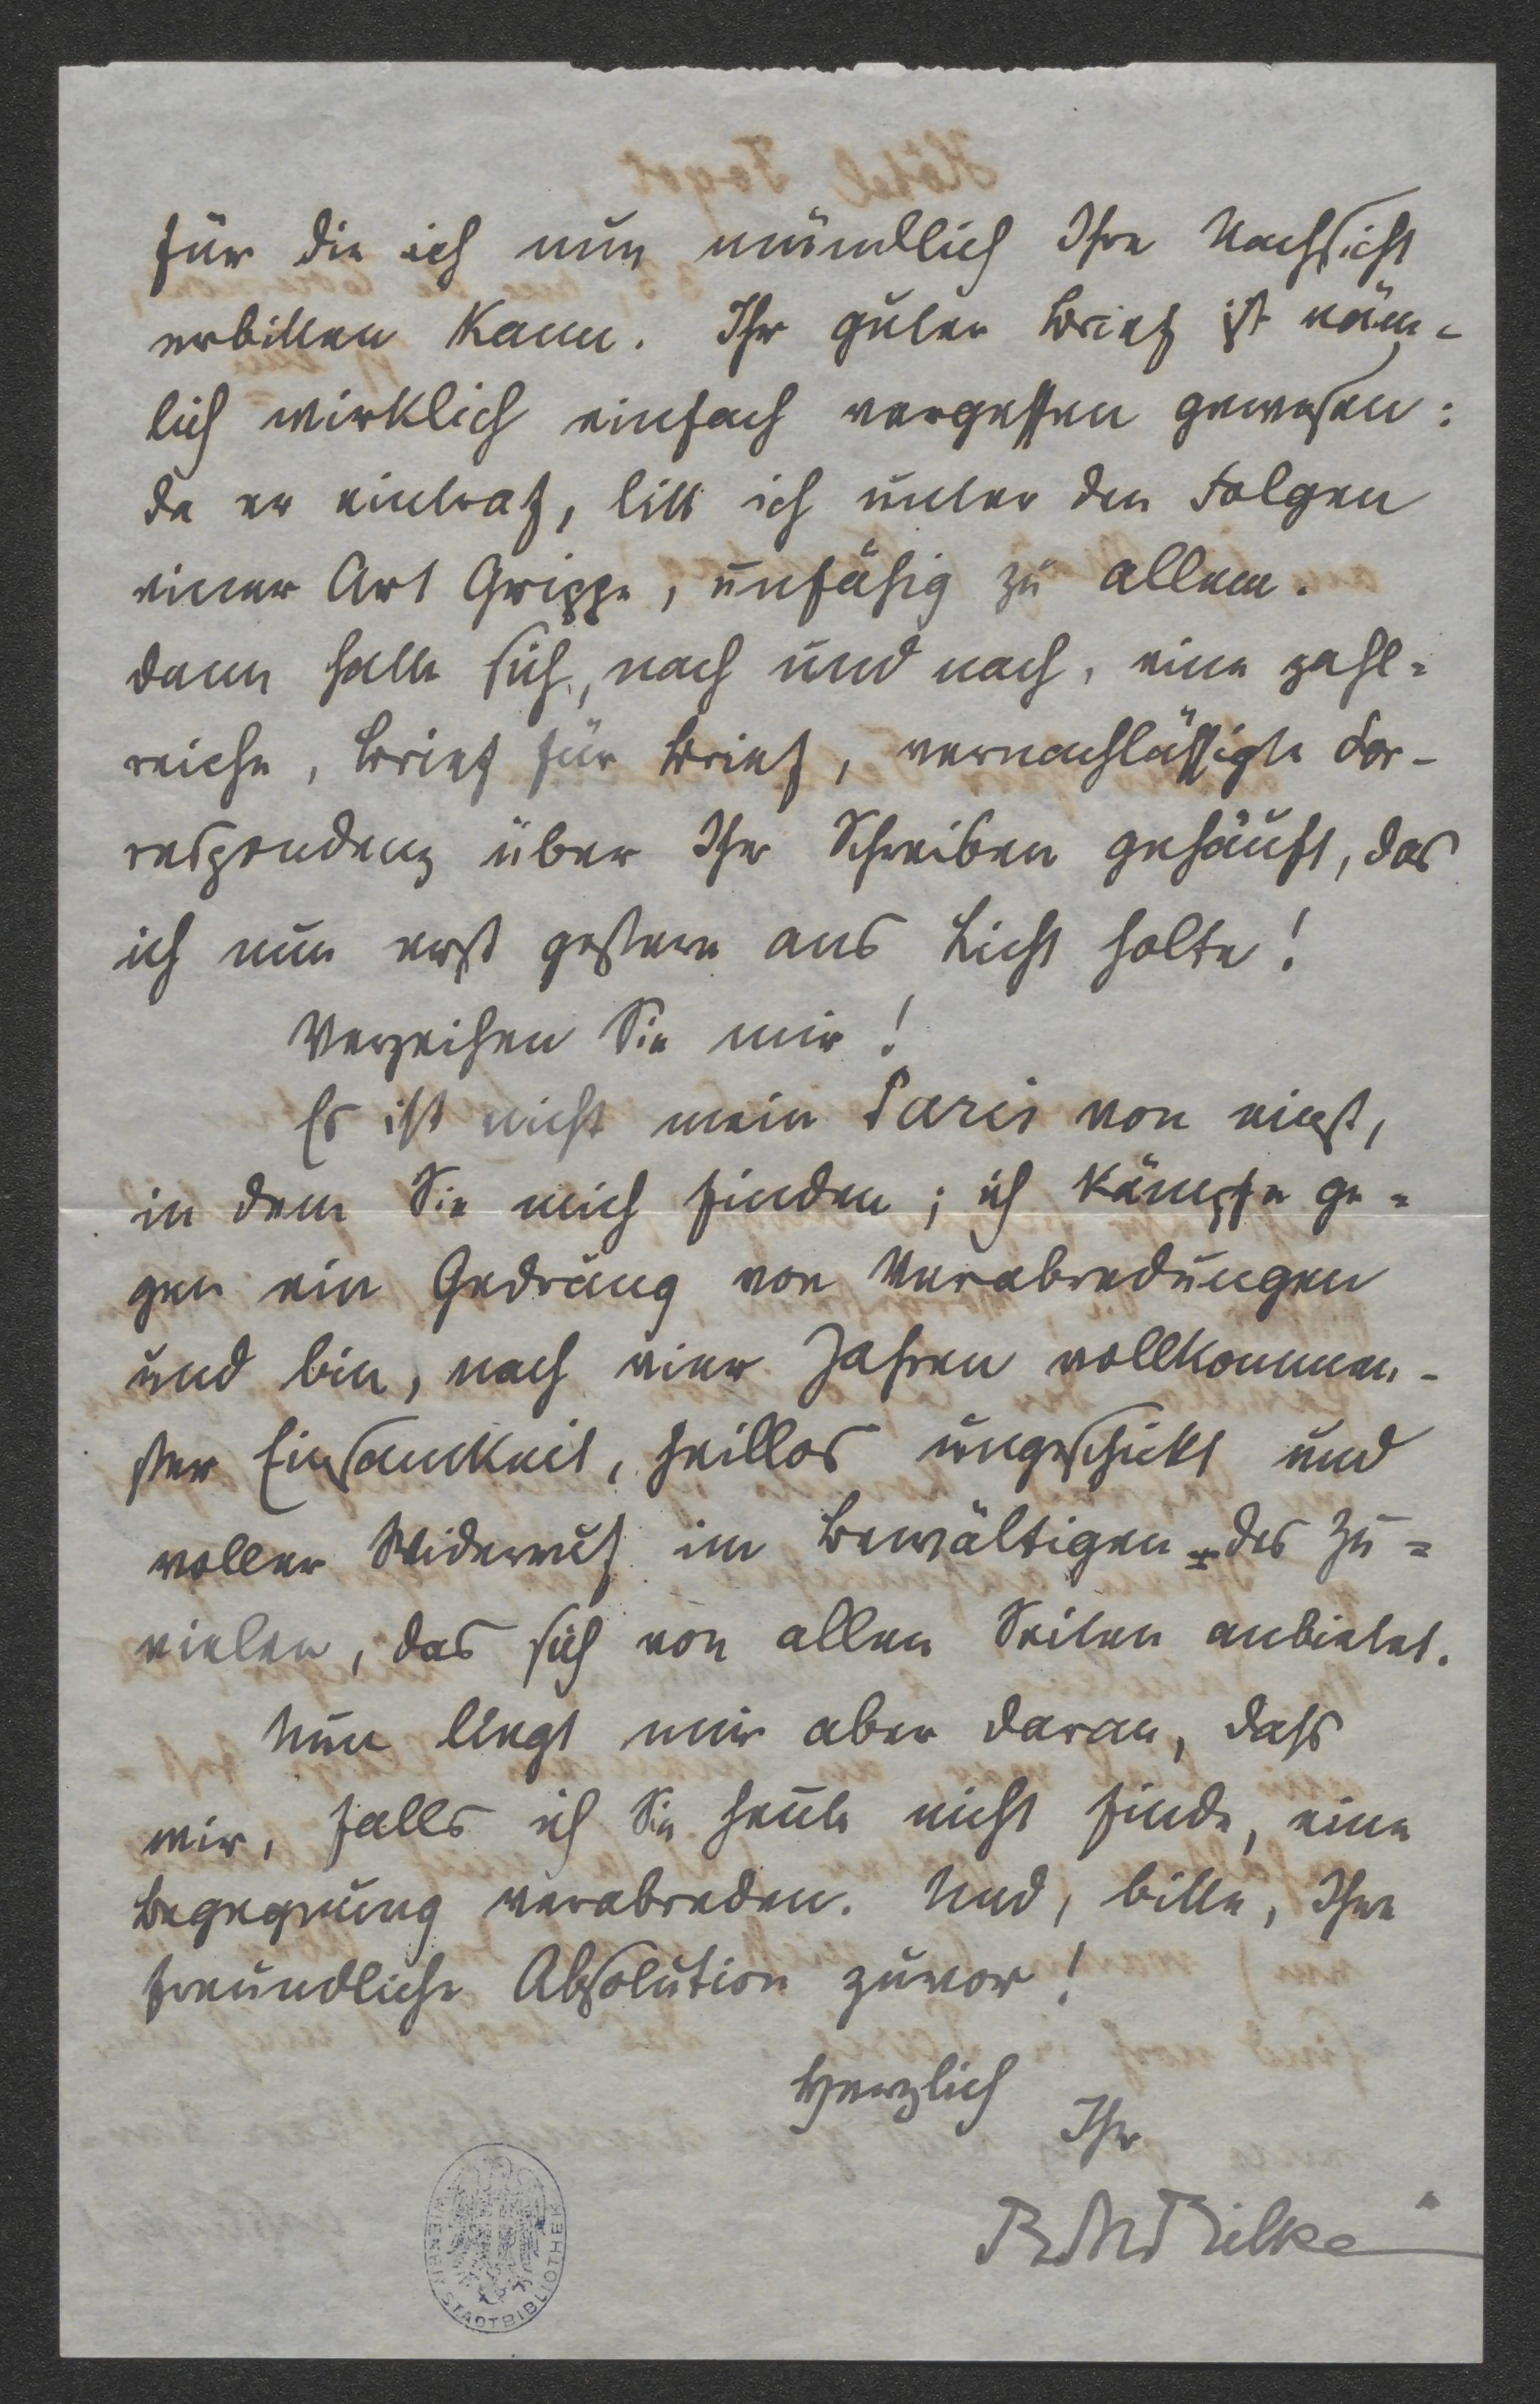 für die ich nun mündlich Ihre Nachsicht
erbitten kann. Ihr guter Brief ist näm-
lich wirklich einfach vergessen gewesen:
da er eintraf, litt ich unter den Folgen
einer Art Grippe, unfähig zu allem.
dann hatte sich, nach und nach, eine zahl=
reiche, Brief für Brief, vernachlässigte Cor-
respondenz über Ihr Schreiben gehäuft, das
ich nun erst gestern ans Licht holte!
Verzeihen Sie mir!
Es ist nicht mein Paris von einst,
in dem Sie mich finden; ich kämpfe ge=
gen ein Gedräng von Verabredungen
und bin, nach vier Jahren vollkommen-
ster Einsamkeit, heillos ungeschickt und
voller Widerruf im Bewältigen des Zu=
vielen, das sich von allen Seiten anbietet.
Nun liegt mir aber daran, dass
wir, falls ich Sie heute nicht finde, eine
Begegnung verabreden. Und, bitte, Ihre
freundliche Absolution zuvor!
Herzlich
Ihr
RMRilke
WIENER STADTBIBLIOTHEK